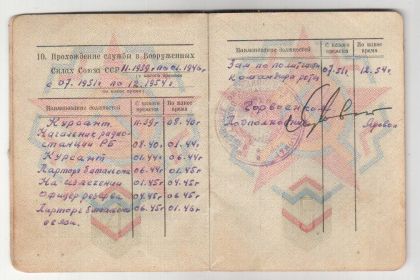 10. Прохождение службы в Вооруженных
Силах Союза ССР 11.1939г по 01.1946г
(с какого времени
с 07.1951г по 12.1954г
по какое время)
Наименование должностей С какого времени По какое время
Курсант 11.39г 08.40г
Начальник радио-
станции РБ 08.40г 01.44г
Курсант 01.44г 06.44г
Парторг батальона 06.44г 01.45г
На излечении 01.45г 04.45г
Офицер резерва 04.45г 06.45г
Парторг батальона 06.45г 01.46г
связи.
Наименование должностей С какого времени По какое время
Зам по политчасти 07.51г 12.54г
командира роты
Горвоенком
Подполковник